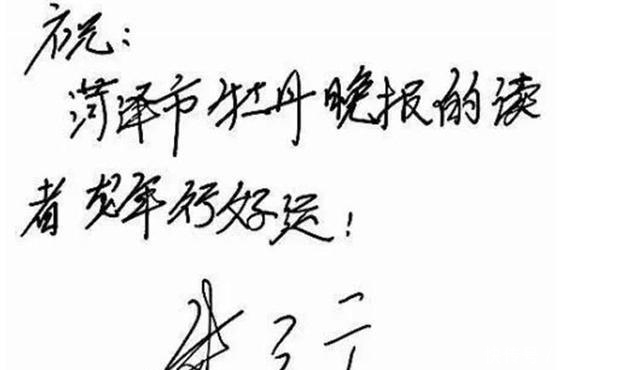 祝:
菏泽市牡丹晚报的读
者龙年行好运!